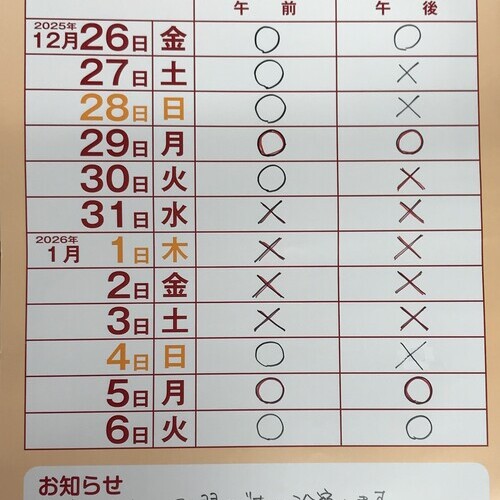 午前 午後
2025年
12月26日 金 ○ ○
27日 土 ○ ×
28日 日 ○ ×
29日 月 ○ ○
30日 火 ○ ×
31日 水 × ×
2026年
1月 1日 木 × ×
2日 金 × ×
3日 土 × ×
4日 日 ○ ×
5日 月 ○ ○
6日 火 ○ ○
お知らせ